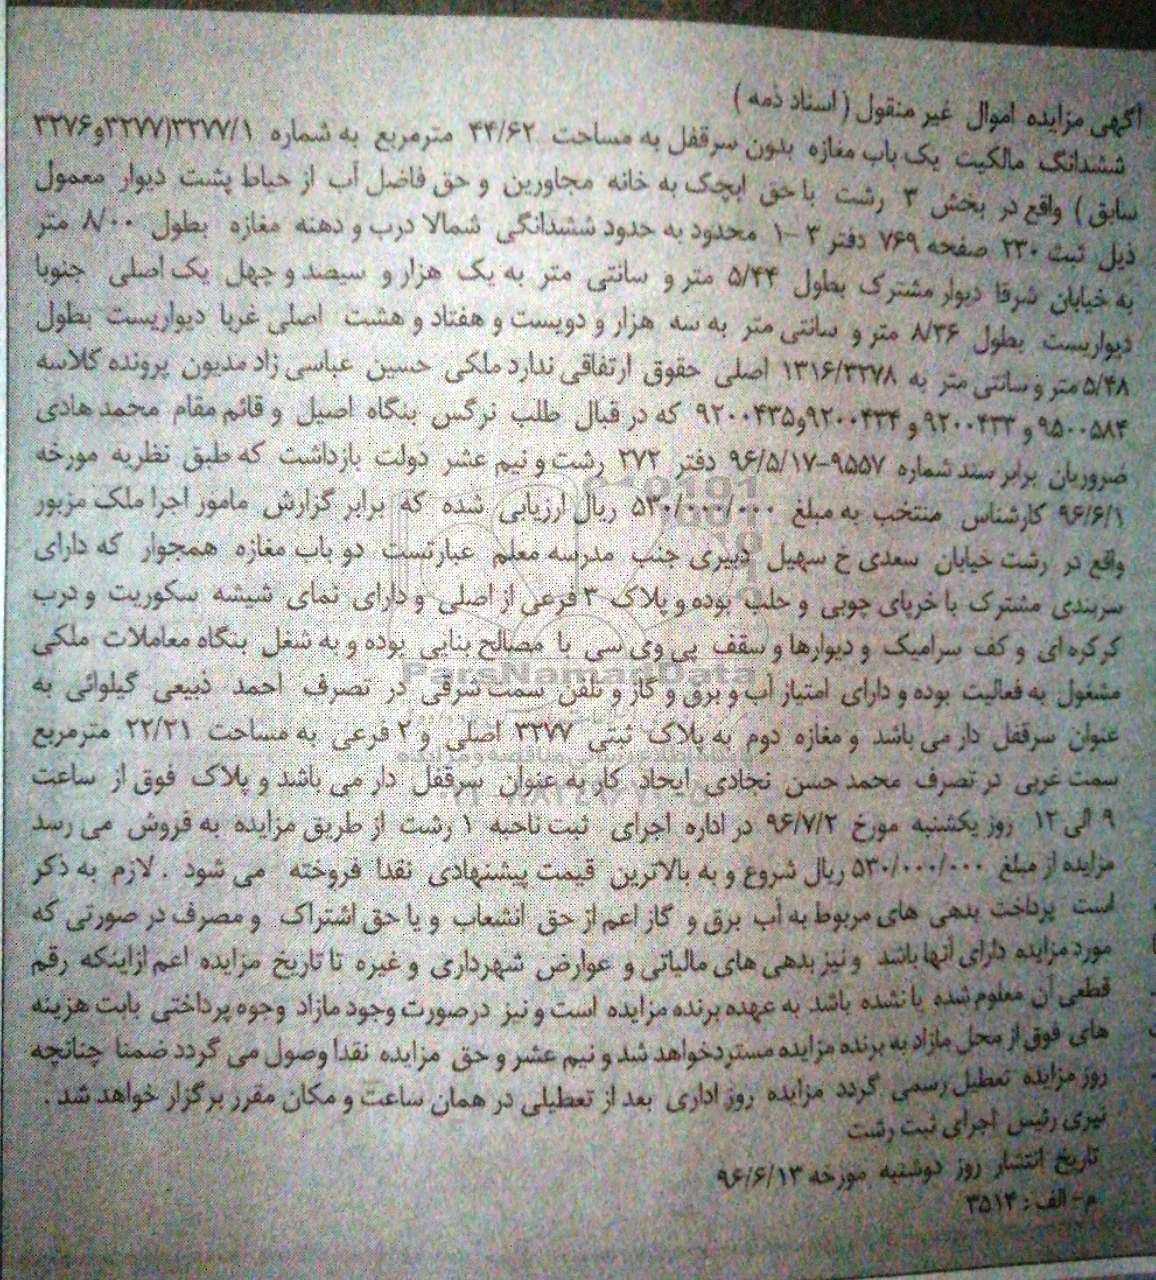 آگهی مزایده اموال غیر منقول ( اسناد ذمه )
ششدانگ مالکیت یک باب مغازه بدون سرقفل به مساحت ۴۴/۶۲ مترمربع به شماره ۳۲۷۷/۱(۳۲۷۷و۳۲۷۶
سابق ) واقع در بخش ۳ رشت با حق ابچک به خانه مجاورین و حق فاضل آب از حیاط پشت دیوار معمول
ذیل ثبت ۲۳۰ صفحه ۷۶۹ دفتر ۳ –۱ محدود به حدود ششدانگی شمالا درب و دهنه مغازه بطول ۸/۰۰ متر
به خیابان شرقا دیوار مشترک بطول ۵/۴۴ متر و سانتی متر به یک هزار و سیصد و چهل یک اصلی جنوبا
دیواریست بطول ۸/۳۶ متر و سانتی متر به سه هزار و دویست و هفتاد و هشت اصلی غربا دیواریست بطول
۵/۴۸ متر و سانتی متر به ۱۳۱۶/۳۲۷۸ اصلی حقوق ارتفاقی ندارد ملکی حسین عباسی زاد مدیون پرونده کلاسه
۹۵۰۰۵۸۴ و ۹۲۰۰۴۳۳ و ۹۲۰۰۴۳۴و۹۲۰۰۴۳۵ که در قبال طلب نرگس بنگاه اصیل و قائم مقام محمد هادی
ضروریان برابر سند شماره ۹۵۵۷–۹۶/۵/۱۷ دفتر ۲۷۲ رشت و نیم عشر دولت بازداشت که طبق نظریه مورخه
۹۶/۶/۱ کارشناس منتخب به مبلغ ۵۳۰/۰۰۰/۰۰۰ ریال ارزیابی شده که برابر گزارش مامور اجرا ملک مزبور
واقع در رشت خیابان سعدی خ سهیل دبیری جنب مدرسه معلم عبارتست دو باب مغازه همجوار که دارای
سربندی مشترک با خرپای چوبی و حلب بوده و پلاک ۳ فرعی از اصلی و دارای نمای شیشه سکوریت و درب
کرکره ای و کف سرامیک و دیوارها و سقف پی وی سی با مصالح بنایی بوده و به شغل بنگاه معاملات ملکی
مشغول به فعالیت بوده و دارای امتیاز آب و برق و گاز و تلفن سمت شرقی در تصرف احمد ذبیعی گیلوائی به
عنوان سرقفل دار می باشد و مغازه دوم به پلاک ثبتی ۳۲۷۷ اصلی و ۲ فرعی به مساحت ۲۲/۳۱ مترمربع
سمت غربی در تصرف محمد حسن نجادی ایجاد کار به عنوان سرقفل دار می باشد و پلاک فوق از ساعت
۹ الی ۱۲ روز یکشنبه مورخ ۹۶/۷/۲ در اداره اجرای ثبت ناحیه ۱ رشت از طریق مزایده به فروش می رسد
مزایده از مبلغ ۵۳۰/۰۰۰/۰۰۰ ریال شروع و به بالاترین قیمت پیشنهادی نقدا فروخته می شود . لازم به ذکر
است پرداخت بدهی های مربوط به آب برق و گاز اعم از حق انشعاب و یا حق اشتراک و مصرف در صورتی که
مورد مزایده دارای آنها باشد و نیز بدهی های مالیاتی و عوارض شهرداری و غیره تا تاریخ مزایده اعم ازاینکه رقم
قطعی آن معلوم شده یا نشده باشد به عهده برنده مزایده است و نیز درصورت وجود مازاد وجوه پرداختی بابت هزینه
های فوق از محل مازاد به برنده مزایده مسترد خواهد شد و نیم عشر و حق مزایده نقدا وصول می گردد ضمنا چنانچه
روز مزایده تعطیل رسمی گردد مزایده روز اداری بعد از تعطیلی در همان ساعت و مکان مقرر برگزار خواهد شد .
نیری رئیس اجرای ثبت رشت
تاریخ انتشار روز دوشنبه مورخه ۹۶/۶/۱۳
م- الف : ۳۵۱۳
ParsNamadData